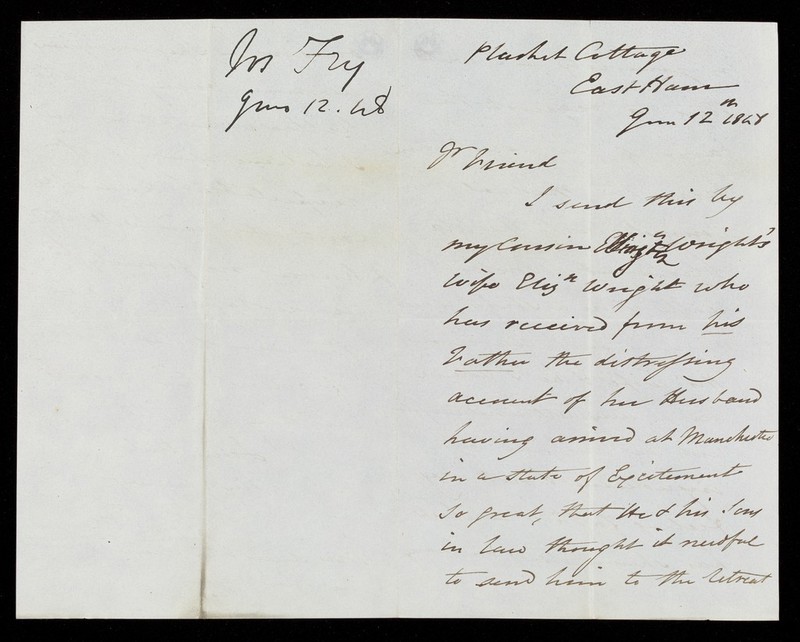 Jos Fry
12. 48
Plashet Cottage
East Ham
12th 1848
Dr Friend
I send this by
my Cousin Wright's
Wife Elizth Wright who
has received from his
Father the distressing
account of her Husband
having arrived at Manchester
in a state of Excitement
so great, that He & his Sons
in law thought it needful
to send him to the Retreat